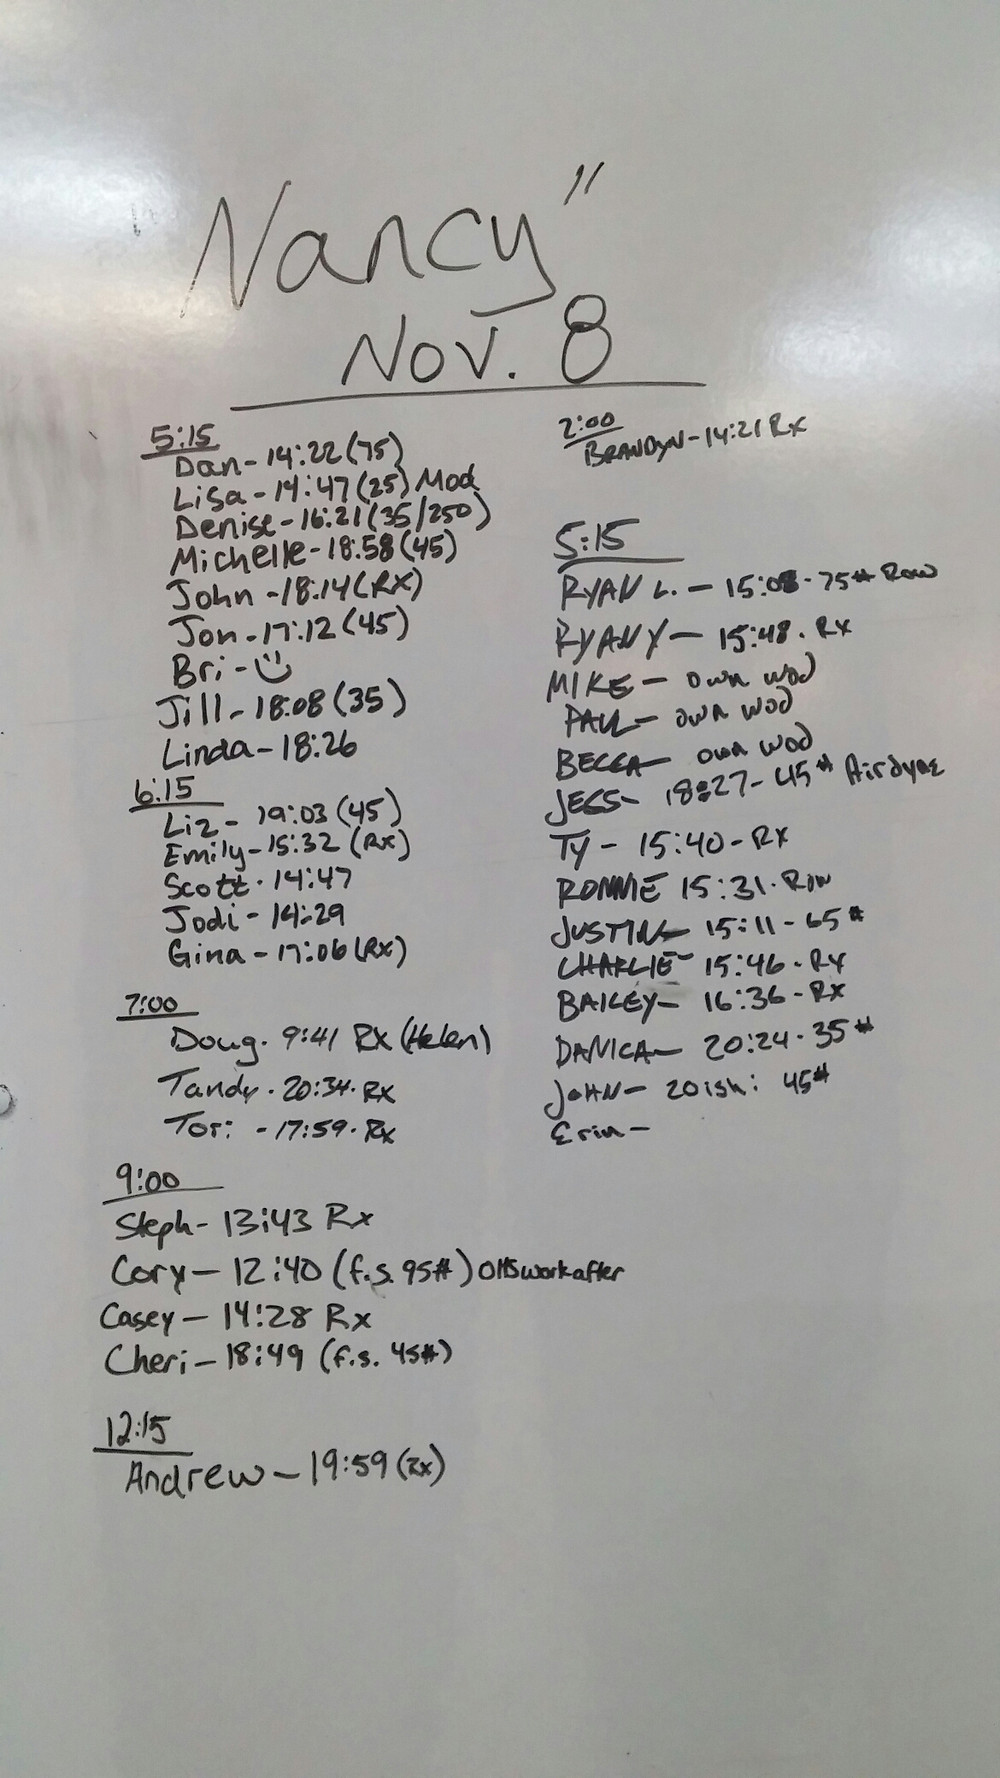 Nancy"
Nov. 8
5:15
Dan - 14:22 (75)
Lisa - 14:47 (25) Mod
Denise - 16:21 (35/250)
Michelle - 18:58 (45)
John - 18:14 (RX)
Jon - 17:12 (45)
Bri -
Jill - 18:08 (35)
Linda - 18:26
6:15
Liz - 19:03 (45)
Emily - 15:32 (Rx)
Scott - 14:47
Jodi - 14:29
Gina - 17:06 (Rx)
7:00
Doug - 9:41 RX (Helen)
Tandy - 20:34 - Rx
Tori - 17:59 - Rx
9:00
Steph - 13:43 Rx
Cory - 12:40 (f.s. 95#) OHS work after
Casey - 14:28 Rx
Cheri - 18:49 (f.s. 45#)
12:15
Andrew - 19:59 (Rx)
2:00
BRANDYN - 14:21 Rx
5:15
RYAN L. - 15:08 - 75# Row
RYAN Y - 15:48 - Rx
MIKE - own wod
PAUL - own wod
BECCA - own wod
JESS - 18:27 - 45# Airdyne
TY - 15:40 - Rx
RONNIE 15:31 - Row
JUSTIN - 15:11 - 65#
CHARLIE - 15:46 - RX
BAILEY - 16:36 - RX
DANICA - 20:24 - 35#
JOHN - 20ish: 45#
Erin -